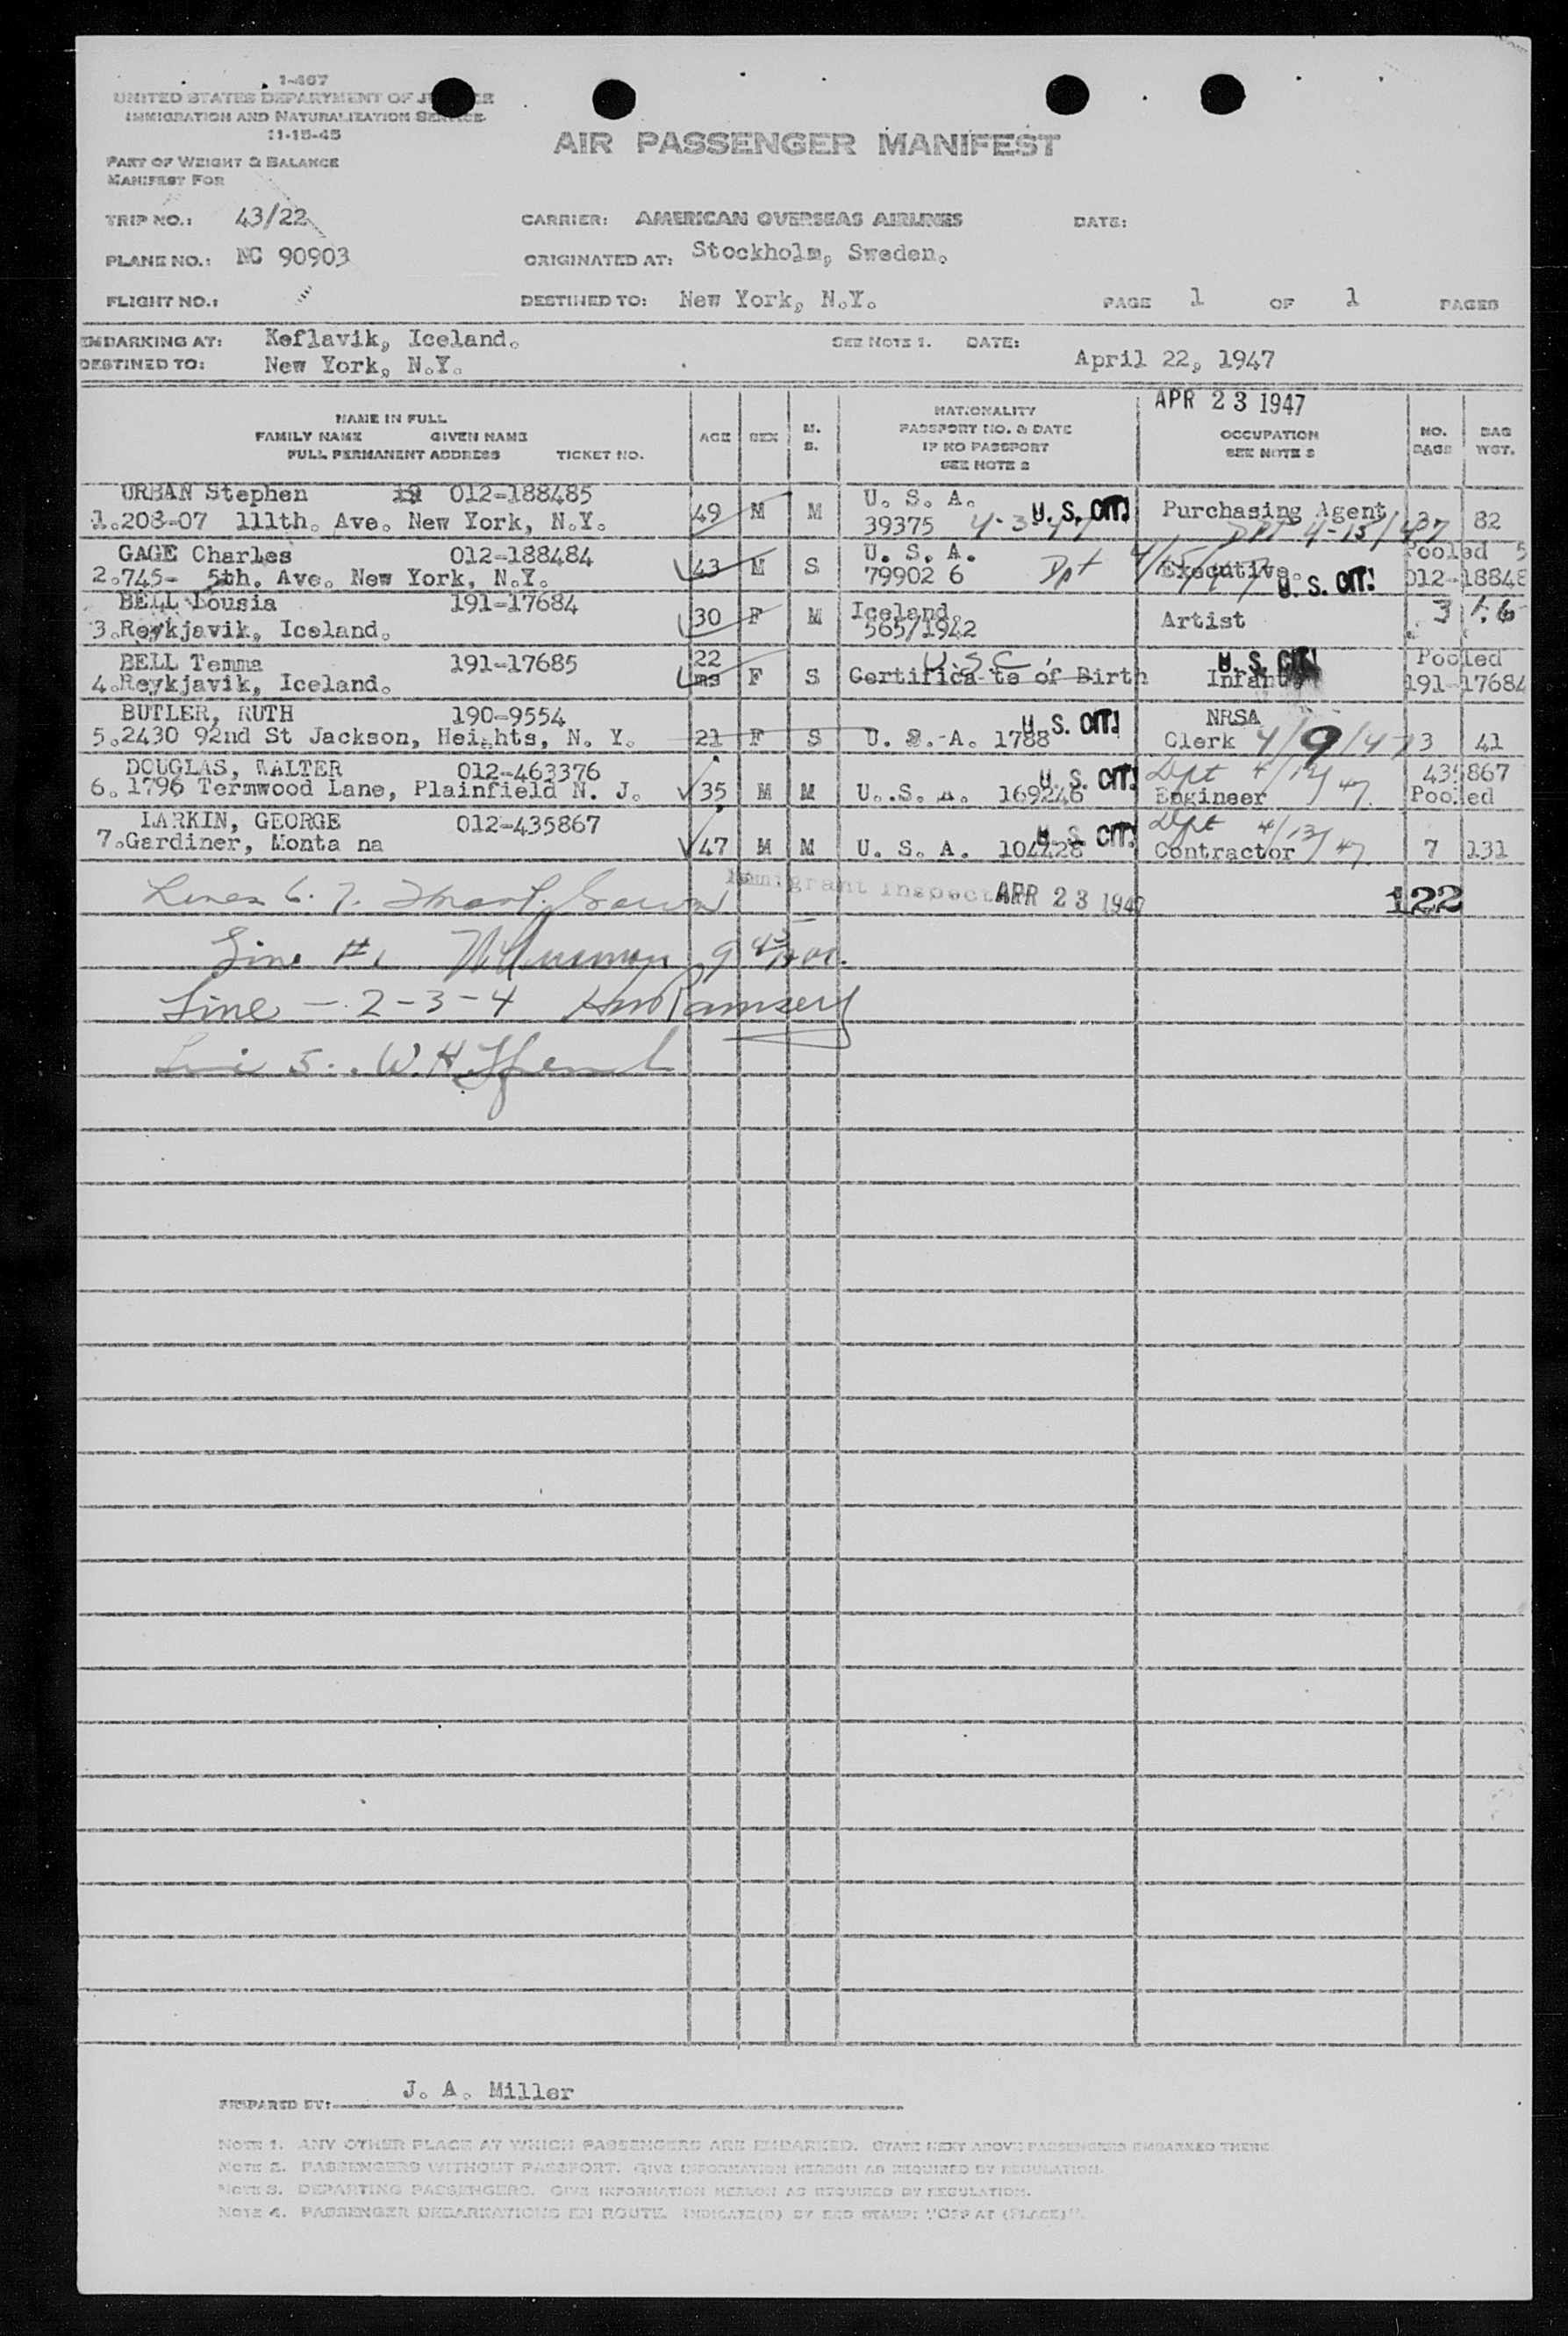 1-467
UNITED STATES DEPARTMENT OF JUSTICE
IMMIGRATION AND NATURALIZATION SERVICE
11-15-45
AIR PASSENGER MANIFEST
PART OF WEIGHT & BALANCE
MANIFEST FOR
TRIP NO.: 43/22 CARRIER: AMERICAN OVERSEAS AIRLINES DATE:
PLANE NO.: NC 90903 ORIGINATED AT: Stockholm, Sweden.
FLIGHT NO.: DESTINED TO: New York, N.Y. PAGE 1 OF 1 PAGES
EMBARKING AT: Keflavik, Iceland. SEE NOTE 1. DATE: April 22, 1947
DESTINED TO: New York, N.Y.
APR 23 1947
NAME IN FULL
FAMILY NAME GIVEN NAME
FULL PERMANENT ADDRESS TICKET NO.
AGE SEX M. S.
NATIONALITY
PASSPORT NO. & DATE
IF NO PASSPORT
SEE NOTE 2
OCCUPATION
SEE NOTE 3
NO. BAGS
BAG WGT.
URBAN Stephen 012-188485 U. S. A. U. S. CIT.
1.208-07 111th. Ave. New York, N.Y. 49 M M 39375 4-3-47 Purchasing Agent Dpt 4-15/47 3 82
GAGE Charles 012-188484 U. S. A. Pooled
2.745- 5th. Ave. New York, N.Y. 43 M S 79902 6 Dpt 4/15/47 Executive. U. S. CIT. 012-1884
BELL Lousia 191-17684 Iceland.
3.Reykjavik, Iceland. 30 F M 565/1942 Artist 3
BELL Temma 191-17685 22 U.S.C. U. S. CIT. Pooled
4.Reykjavik, Iceland. ms F S Certifica te of Birth Infant 191-17684
BUTLER, RUTH 190-9554 U. S. CIT. NRSA
5.2430 92nd St Jackson, Heights, N. Y. 21 F S U. S. A. 1788 Clerk 4/9/47 3 41
DOUGLAS, WALTER 012-463376 U. S. CIT. Dpt 4/13/47 435867
6. 1796 Termwood Lane, Plainfield N. J. 35 M M U. S. A. 169246 Engineer Pooled
LARKIN, GEORGE 012-435867 U. S. CIT. Dpt 4/13/47
7.Gardiner, Monta na 47 M M U. S. A. 104428 Contractor 7 131
Lines 6. 7. Immigrant Inspect APR 23 1947 122
Line #1
Line - 2-3-4 Ramsery
5. W. H.
PREPARED BY: J. A. Miller
NOTE 1. ANY OTHER PLACE AT WHICH PASSENGERS ARE EMBARKED. STATE NEXT ABOVE PASSENGERS EMBARKED THERE
NOTE 2. PASSENGERS WITHOUT PASSPORT. GIVE INFORMATION HEREON AS REQUIRED BY REGULATION.
NOTE 3. DEPARTING PASSENGERS. GIVE INFORMATION HEREON AS REQUIRED BY REGULATION.
NOTE 4. PASSENGER DEBARKATIONS EN ROUTE. INDICATE(D) BY RED STAMP: "OFF AT (PLACE)".